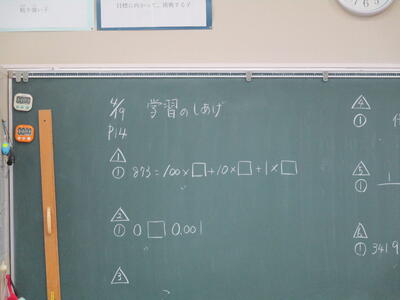 目標に向かって、挑戦する子
4/19 学習のしあげ
P14
△1
① 873=100×□+10×□+1×□
△2
① 0 □ 0.001
△3
△4
①
△5
① 1
△6
① 3419